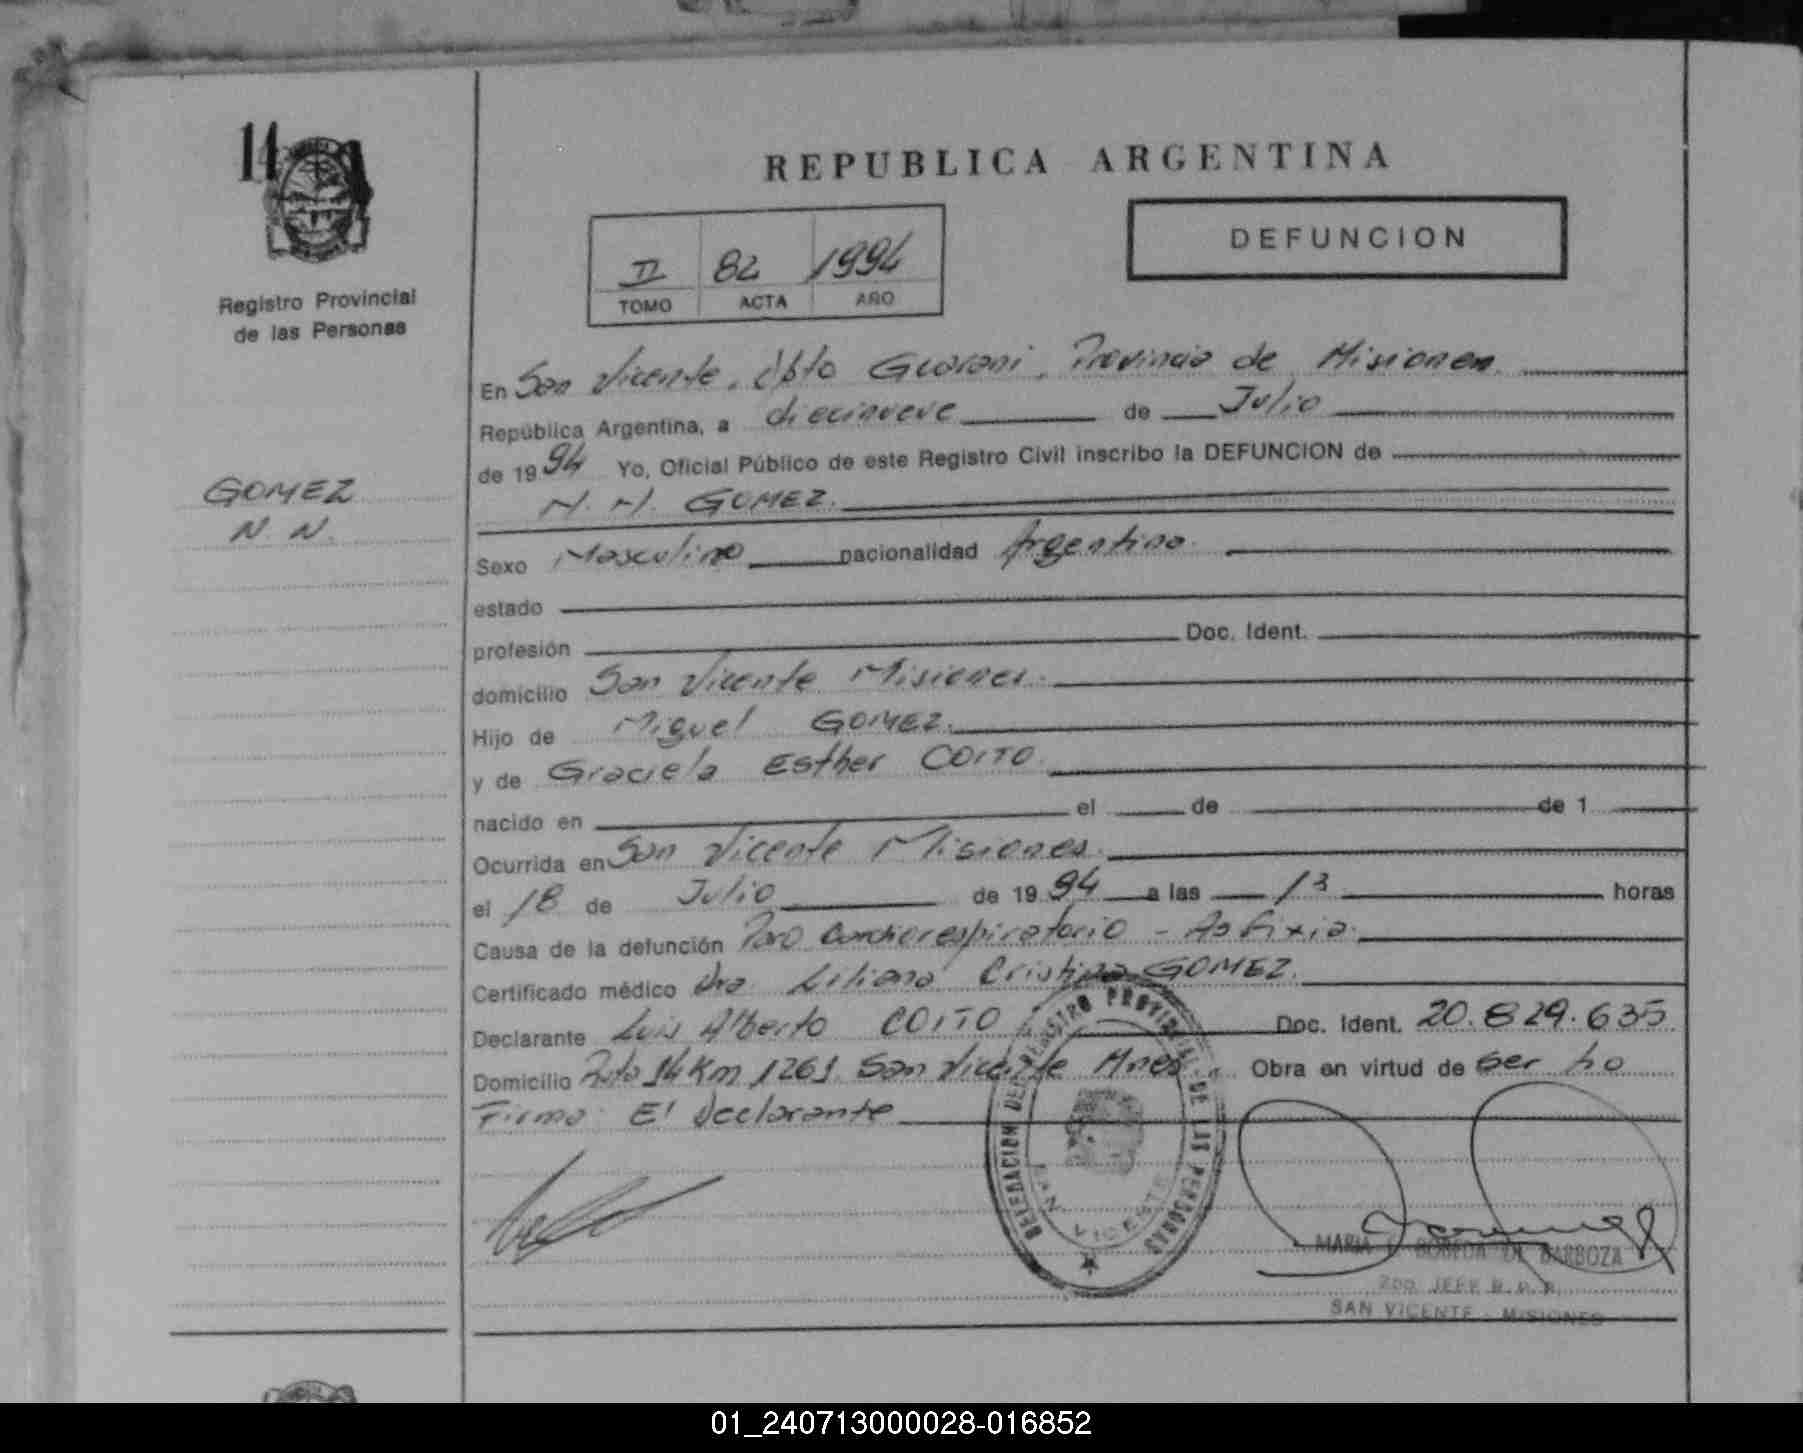 11
REPUBLICA ARGENTINA
DEFUNCION
II 82 1994
TOMO ACTA AÑO
Registro Provincial
de las Personas
GOMEZ
N. N.
En San Vicente, Dpto Guarani, Provincia de Misiones
República Argentina, a diecinueve de Julio
de 1994 Yo, Oficial Público de este Registro Civil inscribo la DEFUNCION de
N. N. GOMEZ.
Sexo Masculino nacionalidad Argentina.
estado
profesión Doc. Ident.
domicilio San Vicente Misiones.
Hijo de Miguel GOMEZ.
y de Graciela Esther COITO.
nacido en el de de 1
Ocurrida en San Vicente Misiones.
el 18 de Julio de 1994 a las 13 horas
Causa de la defunción Paro Cardiorespiratorio - Asfixia.
Certificado médico Dra. Liliana Cristina GOMEZ.
Declarante Luis Alberto COITO Doc. Ident. 20.829.635
Domicilio Ruta 14 Km 1261 San Vicente Mnes. Obra en virtud de ser ho
Firma: El Declarante
DELEGACION DEL REGISTRO PROVINCIAL DE LAS PERSONAS
SAN VICENTE
MARIA BOBEDA DE BARBOZA
2DO. JEFE R. P. P.
SAN VICENTE - MISIONES
01_240713000028-016852